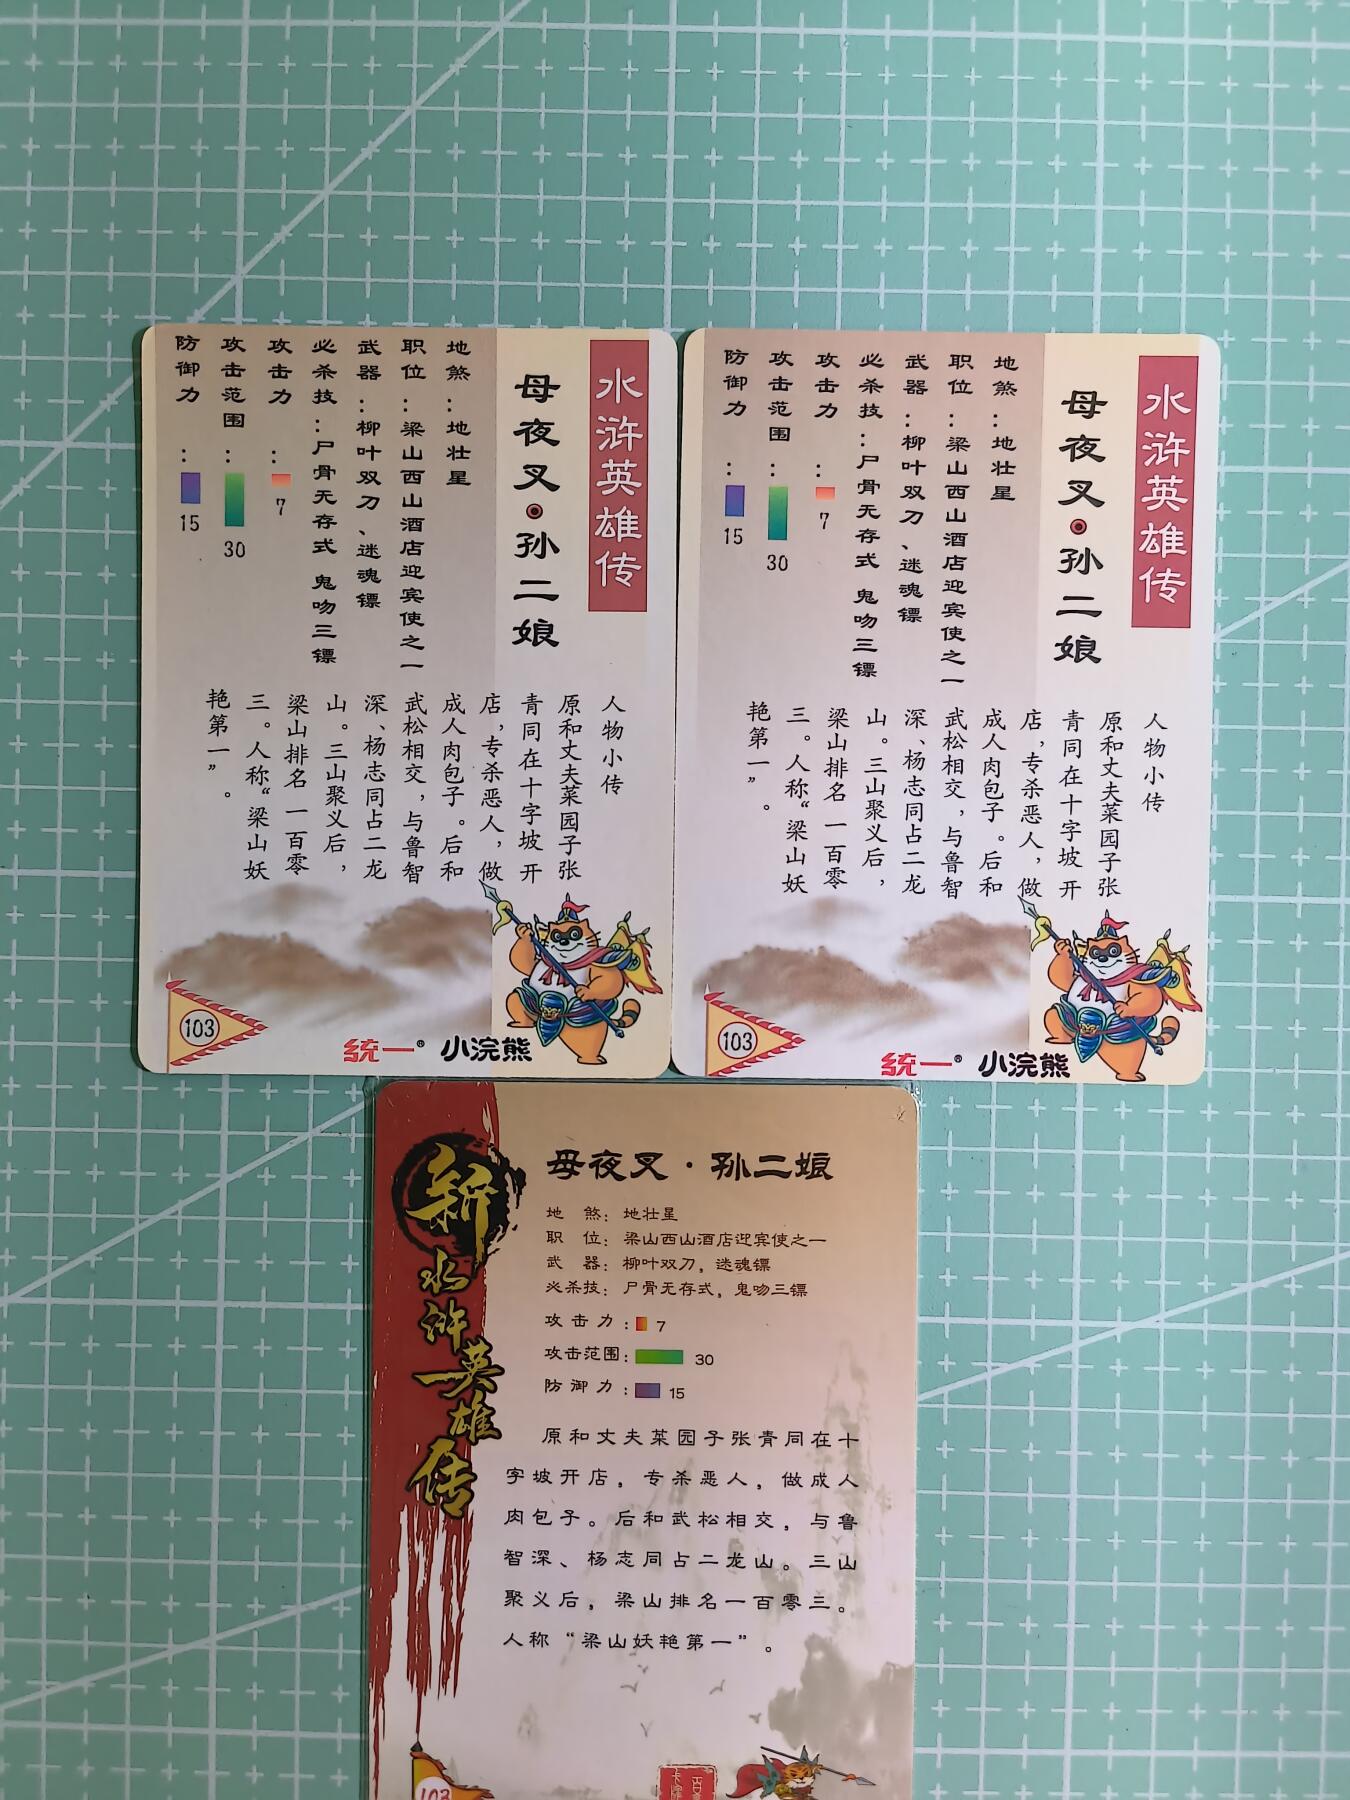 水浒英雄传
母夜叉·孙二娘
地煞：地壮星
职位：梁山西山酒店迎宾使之一
武器：柳叶双刀、迷魂镖
必杀技：尸骨无存式 鬼吻三镖
攻击力：7
攻击范围：30
防御力：15
人物小传
原和丈夫菜园子张
青同在十字坡开
店，专杀恶人，做
成人肉包子。后和
武松相交，与鲁智
深、杨志同占二龙
山。三山聚义后，
梁山排名一百零
三。人称“梁山妖
艳第一”。
103
統一® 小浣熊
水浒英雄传
母夜叉·孙二娘
地煞：地壮星
职位：梁山西山酒店迎宾使之一
武器：柳叶双刀、迷魂镖
必杀技：尸骨无存式 鬼吻三镖
攻击力：7
攻击范围：30
防御力：15
人物小传
原和丈夫菜园子张
青同在十字坡开
店，专杀恶人，做
成人肉包子。后和
武松相交，与鲁智
深、杨志同占二龙
山。三山聚义后，
梁山排名一百零
三。人称“梁山妖
艳第一”。
103
統一® 小浣熊
新水浒英雄传
母夜叉·孙二娘
地煞：地壮星
职位：梁山西山酒店迎宾使之一
武器：柳叶双刀，迷魂镖
必杀技：尸骨无存式，鬼吻三镖
攻击力：7
攻击范围：30
防御力：15
原和丈夫菜园子张青同在十
字坡开店，专杀恶人，做成人
肉包子。后和武松相交，与鲁
智深、杨志同占二龙山。三山
聚义后，梁山排名一百零三。
人称“梁山妖艳第一”。
103